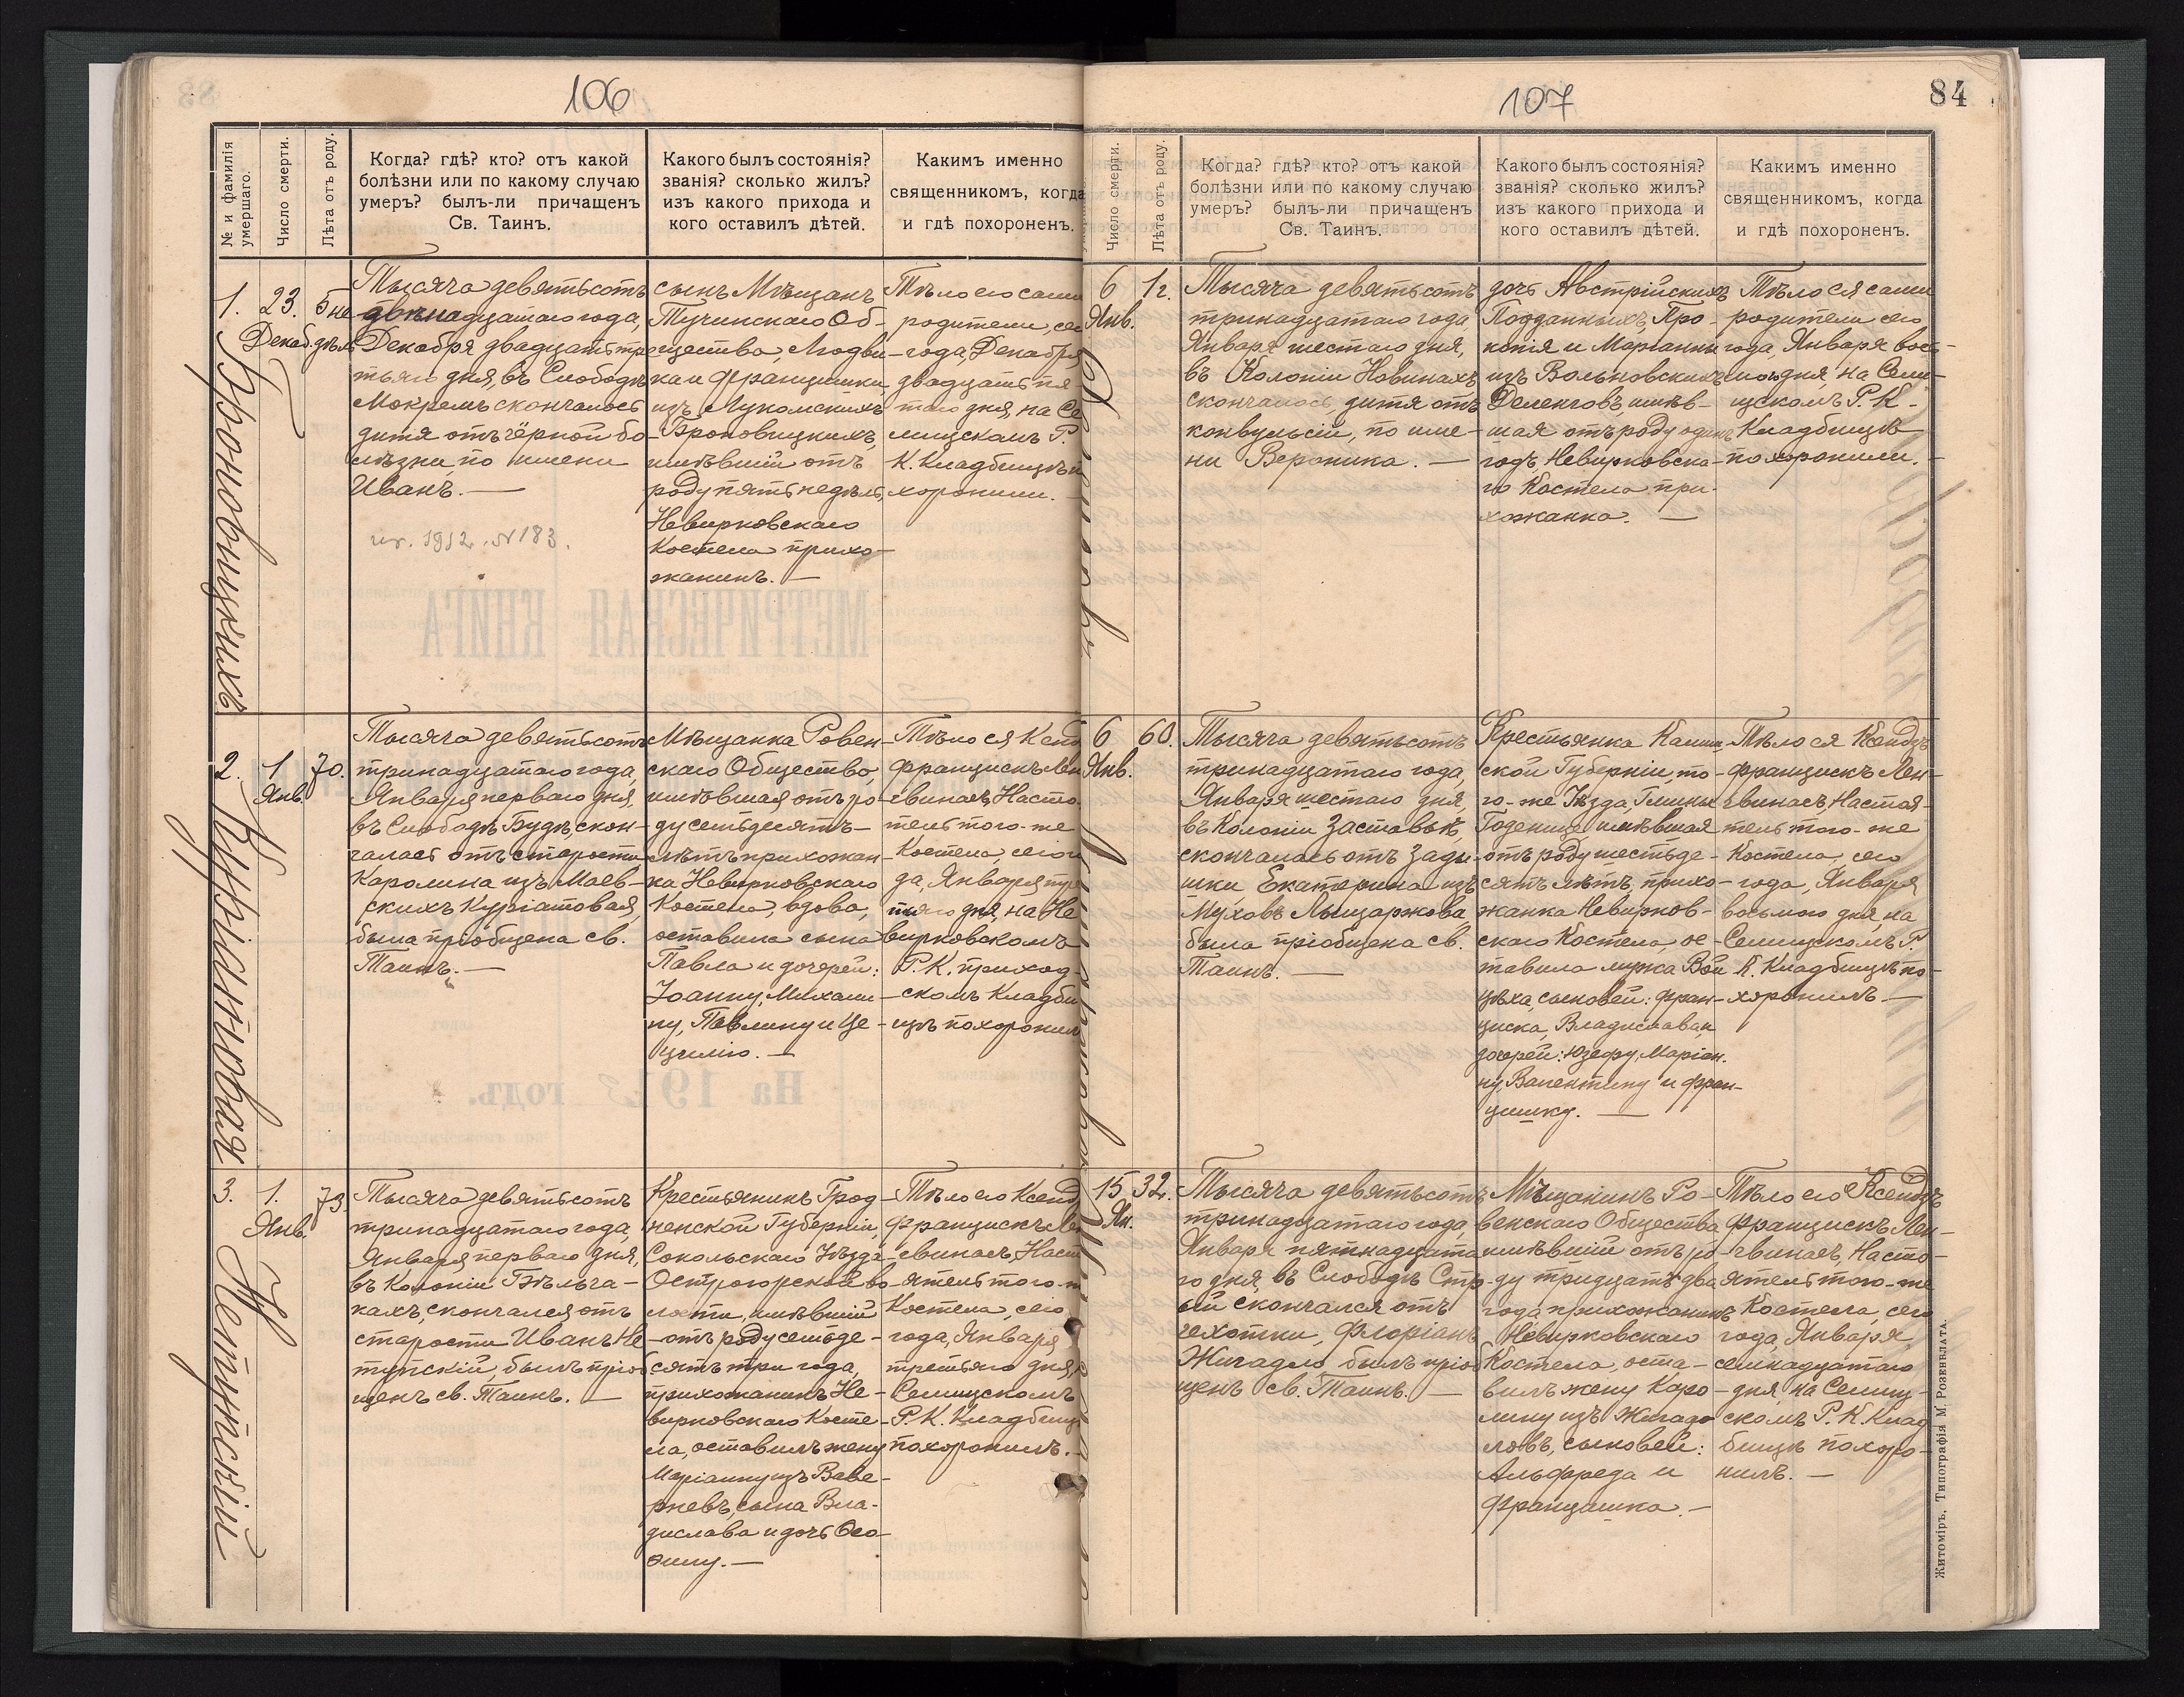 106
№ и фамилія
умершаго.
Число смерти.
Лѣта отъ роду.
Когда? гдѣ? кто? отъ какой
болѣзни или по какому случаю
умеръ? былъ-ли причащенъ
Св. Таинъ.
Какого былъ состоянія?
званія? сколько жилъ?
изъ какого прихода и
кого оставилъ дѣтей.
Какимъ именно
священникомъ, когда
и гдѣ похороненъ.
1.
23.
Декаб.
5 не-
дѣль
Броновицкихъ
Тысяча девятьсотъ
двѣнадцатаго года,
Декабря двадцать тре
тьяго дня, въ Слободѣ
Мокремъ скончалось
дитя отъ чёрной бо-
лѣзни, по имени
Иванъ. —
1912. № 183.
сынъ Мѣщанъ
Тучинскаго Об-
щества, Людви-
ка и Францишки
изъ Лукомскихъ
Броновицкихъ,
имѣвшій отъ
роду пять недѣль,
Невирковскаго
Костела прихо-
жанинъ. —
Тѣло его сами
родители, сего
года, Декабря
двадцать пя-
таго дня, на Се
лищскомъ Р.
К. Кладбищѣ
хоронили. —
2.
1
Янв.
70.
Куріатовая
Тысяча девятьсотъ
тринадцатаго года,
Января перваго дня,
въ Слободѣ Будѣ, скон-
чалась отъ старости
Каролина изъ Маев-
скихъ Куріатовая,
была пріобщена св.
Таинъ. —
Мѣщанка Ровен-
скаго Общества,
имѣвшая отъ ро-
ду семьдесятъ
лѣтъ прихожан-
ка Невирковскаго
Костела, вдова,
оставила сына
Павла и дочерей:
Іоанну, Михали-
ну, Павлину и Це-
цилію. —
Тѣло ея Ксенд
Францискъ Лен
гвинасъ, Насто
тель того-же
Костела, сего
да, Января тре
тьяго дня, на Не
вирковскомъ
Р. К. приход-
скомъ Кладби
щѣ похоронилъ
3.
1.
Янв.
73
Нетупскій
Тысяча девятьсотъ
тринадцатаго года,
Января перваго дня,
въ Колоніи Бѣльча-
кахъ, скончался отъ
старости Иванъ Не
тупскій, былъ пріоб
щенъ св. Таинъ. —
Крестьянинъ Грод-
ненской Губерніи,
Сокольскаго Уѣзда
Острогорской во-
лости, имѣвшій
отъ роду семьде-
сятъ три года,
прихожанинъ Не-
вирковскаго Косте-
ла, оставилъ жену
Маріанну изъ Ваве-
рневъ, сына Вла-
дислава и дочь Ево-
зину. —
Тѣло его Ксенд
Францискъ Лен
гвинасъ, Наст
ятель того-
Костела, сего
года, Января
третьяго дня,
Селищскомъ
Р. К. Кладбищ
похоронилъ. —
107
84
Число смерти.
Лѣта отъ роду.
Когда? гдѣ? кто? отъ какой
болѣзни или по какому случаю
умеръ? былъ-ли причащенъ
Св. Таинъ.
Какого былъ состоянія?
званія? сколько жилъ?
изъ какого прихода и
кого оставилъ дѣтей.
Какимъ именно
священникомъ, когда
и гдѣ похороненъ.
6
Янв.
1 г.
Тысяча девятьсотъ
тринадцатаго года,
Января шестаго дня,
въ Колоніи Новинахъ
скончалось дитя отъ
конвульсіи, по име-
ни Вероника. —
дочь Австрійскихъ
Подданныхъ, Про-
копія и Маріанны
изъ Вольновскихъ
Деленговъ, имѣв-
шая отъ роду одинъ
годъ, Невирковска-
го Костела при-
хожанка. —
Тѣло ея сами
родители сего
года, Января вось-
маго дня, на Сели-
щскомъ Р. К.
Кладбищѣ
похоронили. —
6
Янв.
60.
Тысяча девятьсотъ
тринадцатаго года,
Января шестаго дня,
въ Колоніи Заставьѣ,
скончалась отъ зады-
шки Екатерина изъ
Муховъ Лыщаржова,
была пріобщена св.
Таинъ. —
Крестьянка Калиш-
ской Губерніи, то-
го-же Уѣзда, Гмины
Годенице имѣвшая
отъ роду шестьде-
сятъ лѣтъ, прихо-
жанка Невирков-
скаго Костела, ос-
тавила мужа Вой
цѣха, сыновей: Фран-
циска, Владислава и
дочерей: Юзефу, Маріан.
ну Валентину и Фран-
цишку. —
Тѣло ея Ксендзъ
Францискъ Лен-
гвинасъ, Настоя-
тель того-же
Костела, сего
года, Января
восьмаго дня, на
Селищскомъ Р.
К. Кладбищѣ по-
хоронилъ. —
15
Ян.
32.
Тысяча девятьсотъ
тринадцатаго года,
Января пятнадцата
го дня, въ Слободѣ Стр-
ый скончался отъ
чехотки, Флоріанъ
Жигадло, былъ пріоб
щенъ св. Таинъ. —
Мѣщанинъ Ро-
венскаго Общества
имѣвшій отъ ро-
ду тридцать два
года, прихожанинъ
Невирковскаго
Костела, оста-
вилъ жену Каро-
лину изъ Жигад-
ловъ, сыновей:
Альфреда и
Францишка. —
Тѣло его Ксендзъ
Францискъ Лен-
гвинасъ, Насто-
ятель того-же
Костела, сего
года, Января
семнадцатаго
дня, на Селищ-
скомъ Р. К. Клад
бищѣ похоро-
нилъ. —
Житоміръ, Типографія М. Розенблата.